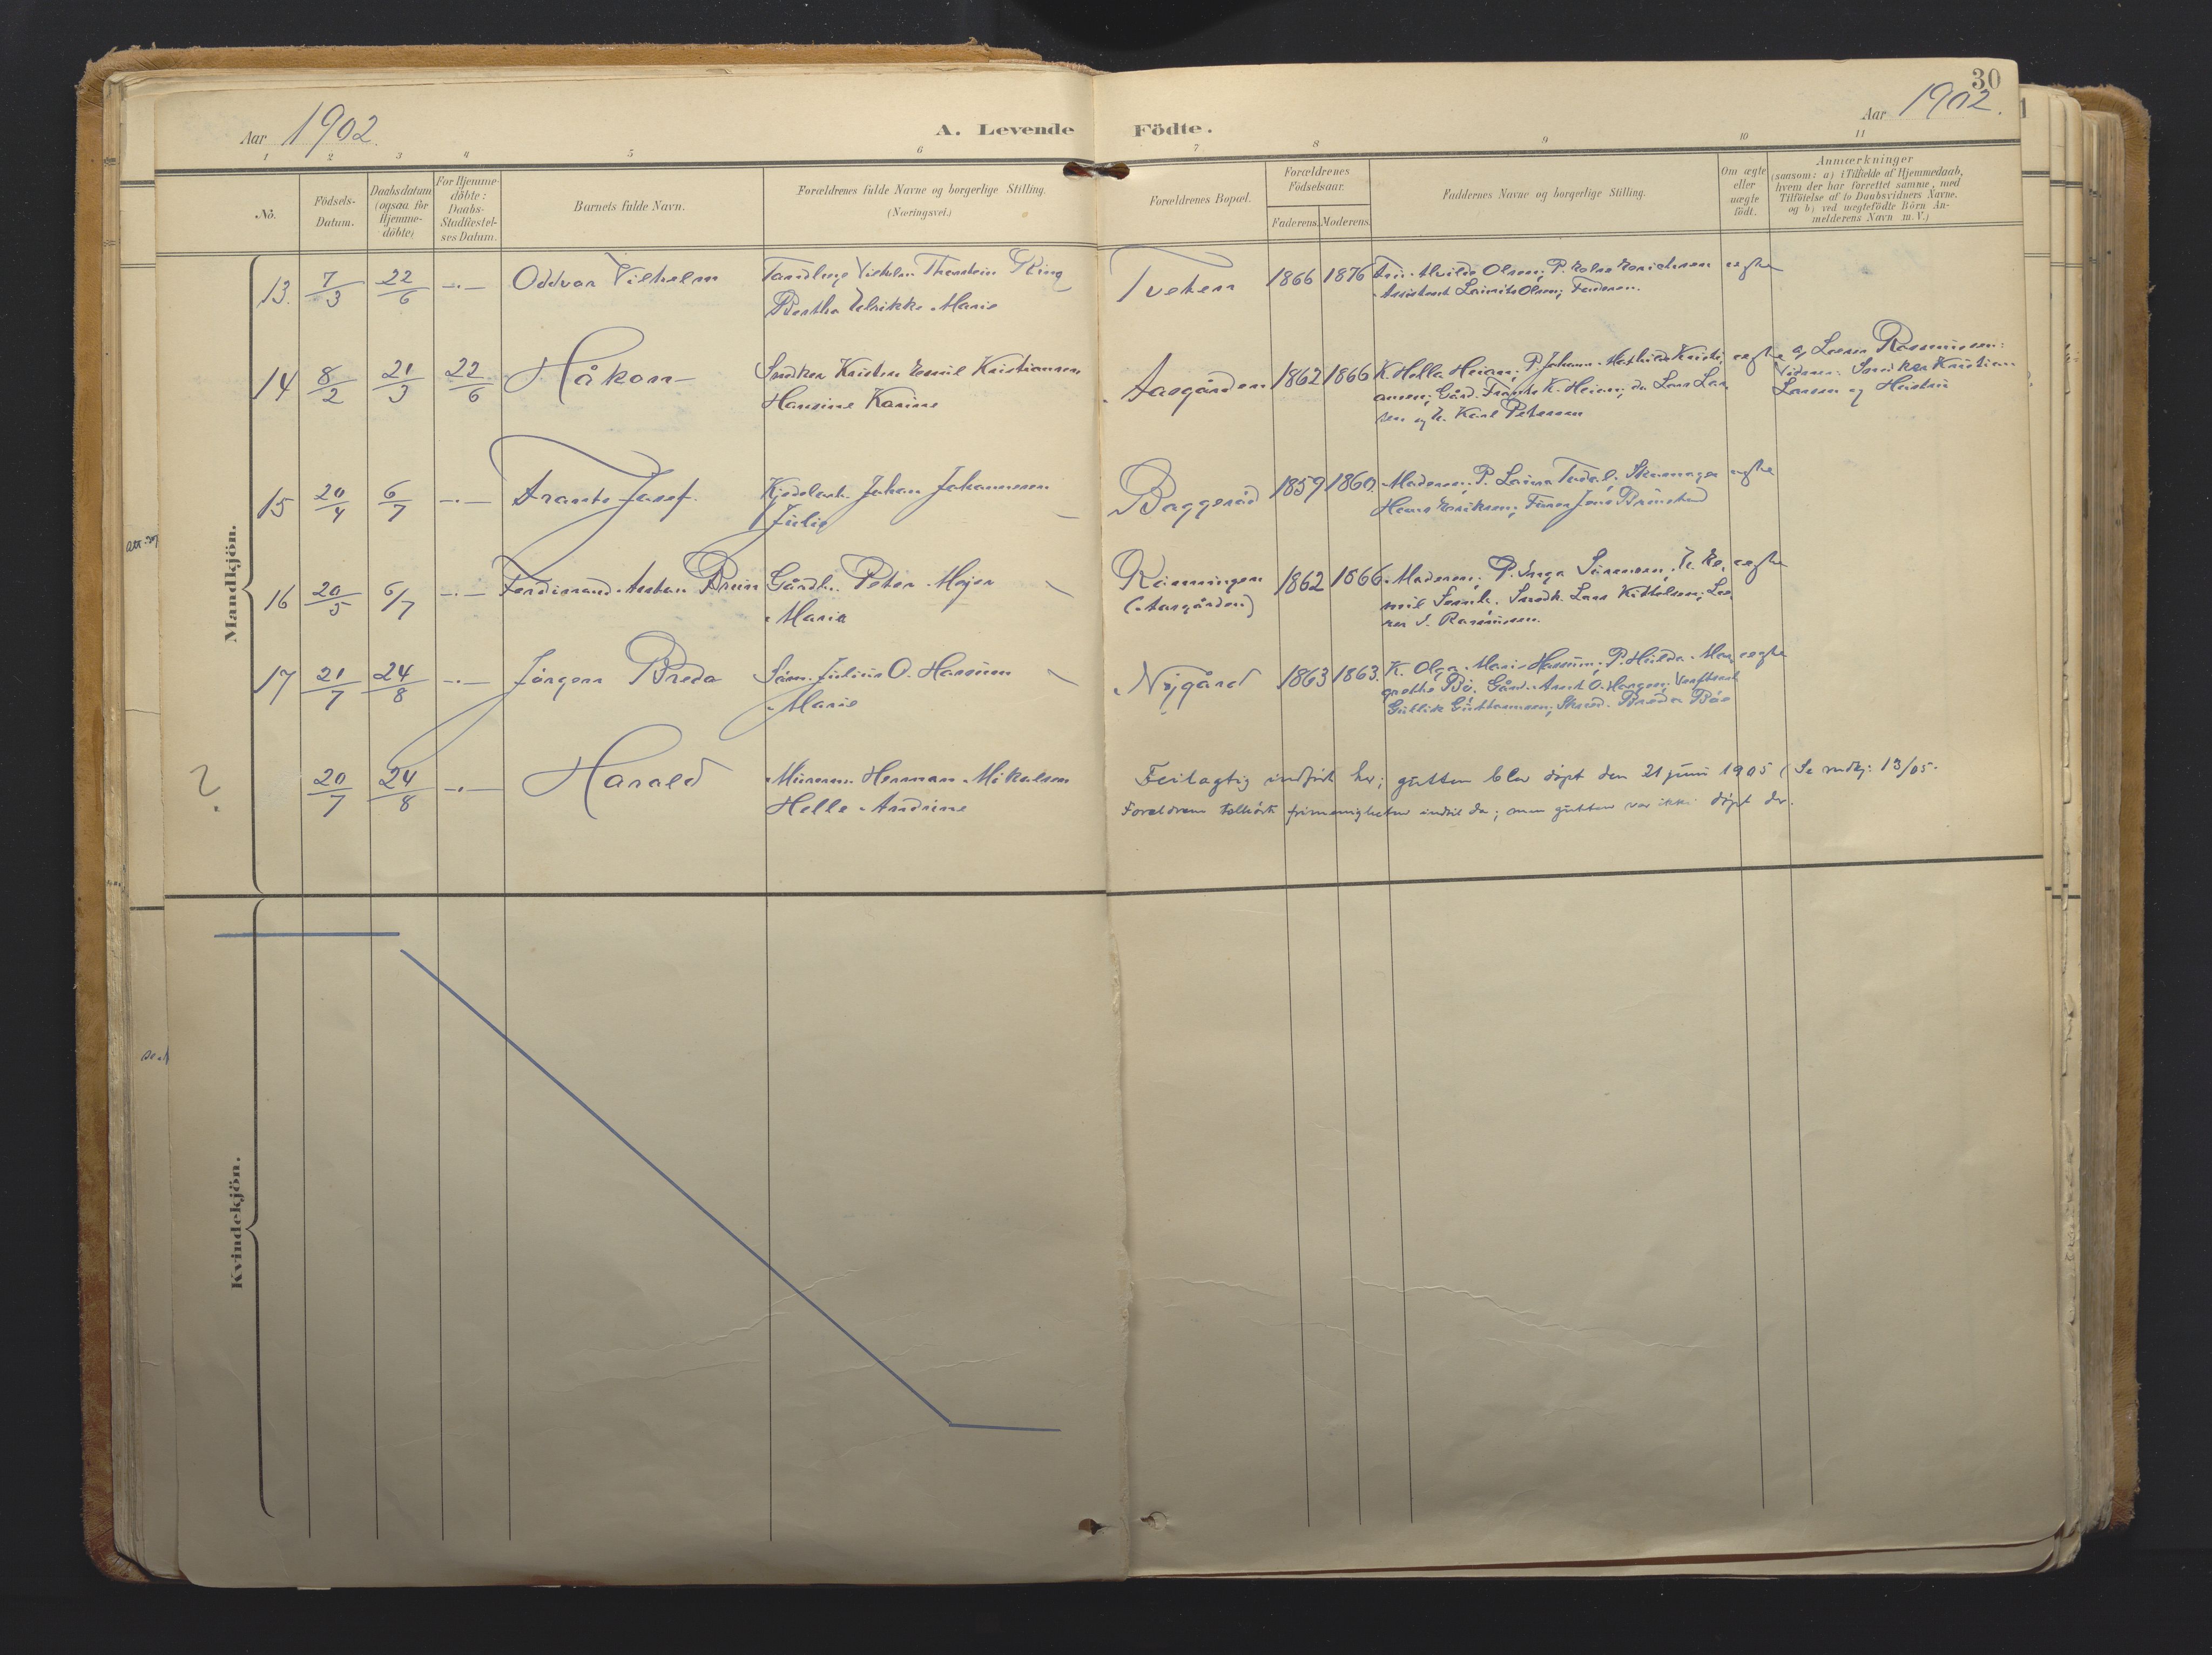 30
Aar 1902.
A. Levende Födte.
Aar 1902.
1 2 3 4 5 6 7 8 9 10 11
No.
Födsels-
Datum.
Daabsdatum
(ogsaa for
Hjemme-
döbte)
For Hjemme-
döbte:
Daabs-
Stadfæstel-
ses Datum.
Barnets fulde Navn.
Forældrenes fulde Navne og borgerlige Stilling.
(Næringsvei.)
Forældrenes Bopæl.
Forældrenes
Födselsaar.
Faderens. Moderens.
Faddernes Navne og borgerlige Stilling.
Om ægte
eller
uægte
födt.
Anmærkninger
(saasom: a) i Tilfælde af Hjemmedaab,
hvem der har forrettet samme, med
Tilföielse af to Daabsvidners Navne.
og b) ved uægtefödte Börn An-
melderens Navn m. V.)
Mandkjön.
13. 7/3 22/6 -.- Oddvar Vilhelm
Tandlæge Vilhelm Thorstein Ring
Bertha Ulrikke Marie
Tveten 1866 1876 Olsen; P.
Assistent Lauritz Olsen; Faderen.
ægte
14 8/2 21/3 22/6 Håkon
Snedker Kristen Emil Kristiansen
Hansine Karine
Aasgården 1862 1866 K. Hella Heian; P. Johanne Mathilde Kristi
ansen; Gård. Frants K. Heian; do. Lars Lar
sen og Karl Petersen
ægte
af Lærer Rasmussen:
Vidner: Snedker Kristian
Larsen og Hustru
15 20/4 6/7 -.- Frants Josef.
Johan Johannesen
Julie
Baggerød 1859 1860. Moderen; P. Laura
Hans Eriksen; Jens
ægte
16 20/5 6/7 -.- Ferdinand Anton Bruun
Gårdbr. Peter Mejer
Marie
Rönningen
(Aasgården)
1862 1866. Moderen; P. Inga
Snedk. Lars Kittelsen; Læ
rer S. Rasmussen.
ægte
17 21/7 24/8 -.- Jörgen Breda
Söm. Julius O. Hansen
Marie
Nygård 1863 1863. K. Olga Marie Hansen; P. Hulda Mar
grethe Bö. Gård. Anert O. Hansen;
Gullik Guttormsen; Skræd. Breda Böe
ægte
? 20/7 24/8 -.- Harald
Murerm. Herman Mikalsen
Helle Andrine
Feilagtig indført her; gutten blev døpt den 21 juni 1905 (Se mdkj: 13/05.
Forældrene tilhørte frimenigheten indtil da; men gutten var ikke døpt der.
Kvindekjön.